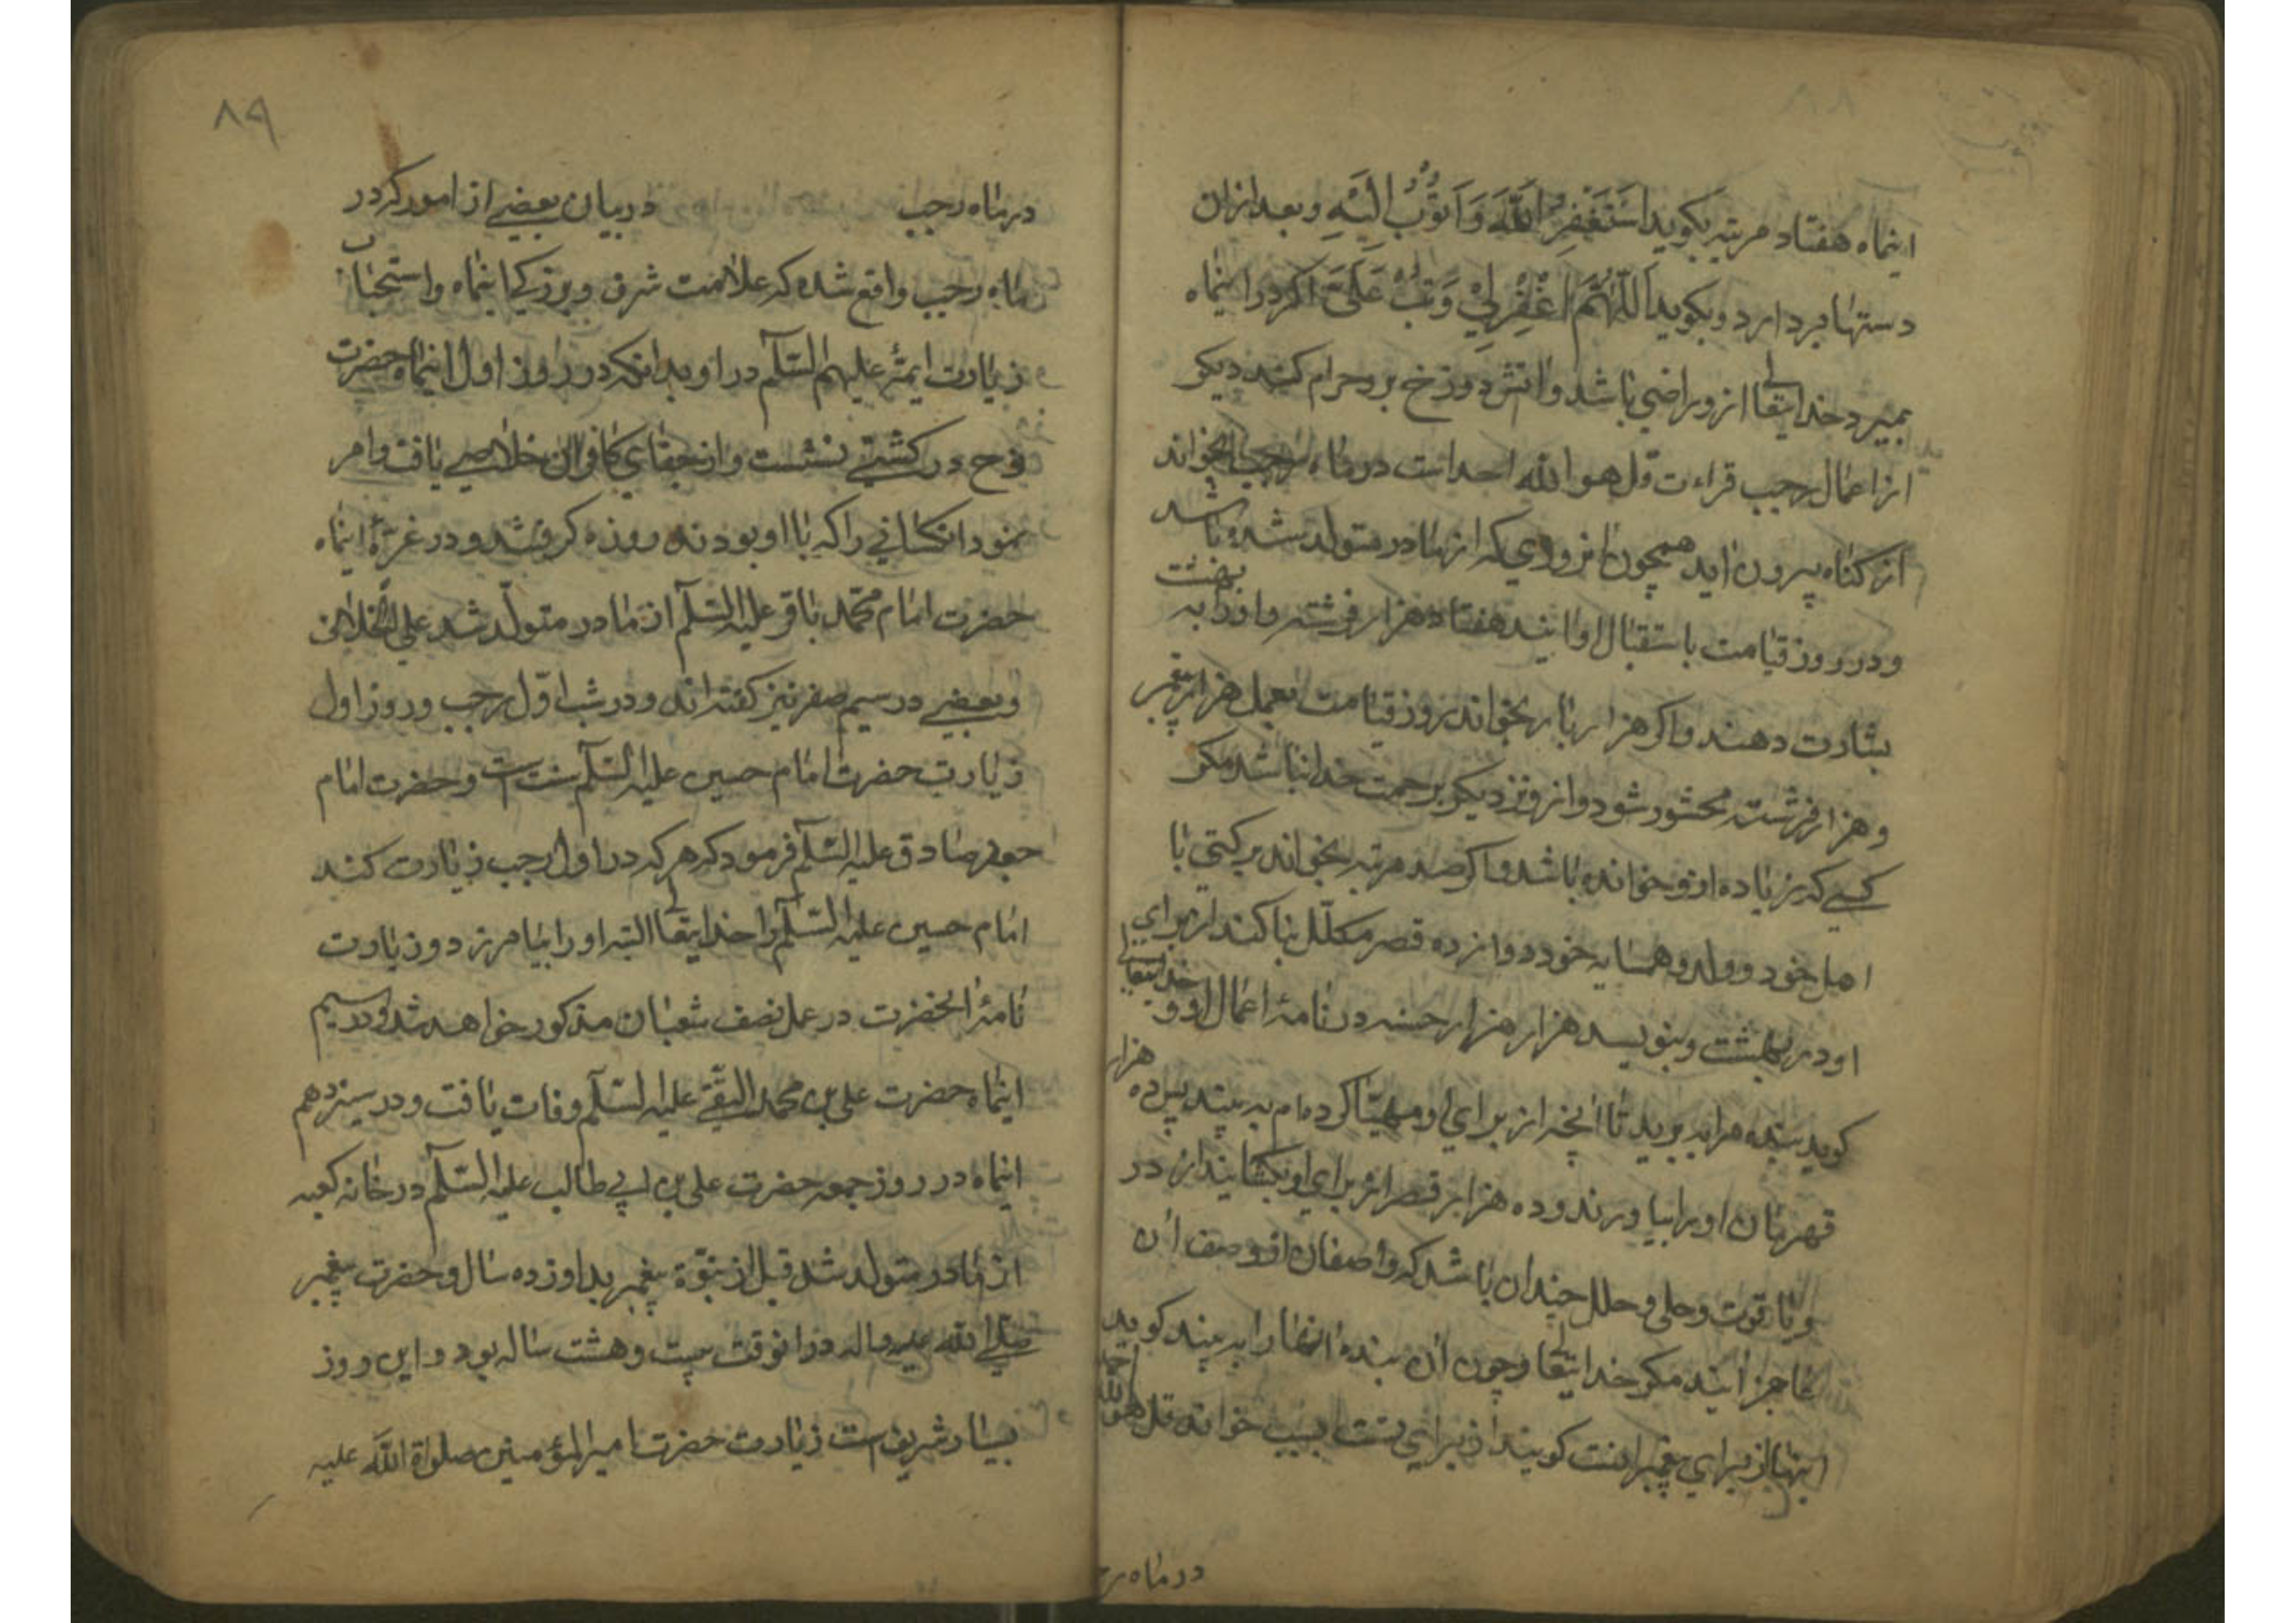 اینماه هفتاد مرتبه بکوید اَستَغفِرُ اللّٰهَ وَاَتوُبُ اِلَیْهِ وبعد ازان
دستها بردارد وبکوید اَللّٰهُمَّ اغْفِرْلِیْ وَتُبْ عَلَیَّ اکر در اینماه
بمیرد خدایتعالی ازو راضی باشد واتش دوزخ برو حرام کند دیکر
از اعمال رجب قراءت قل هو الله احد است در ماه رجب بخواند
از کناه بیرون اید همچون انروزی که از مادر متولد شده باشد
ودر روز قیامت باستقبال او ایند هفتاد هزار فرشته و او را به بهشت
بشارت دهند واکر هزار بار بخواند بروز قیامت بعمل هزار پیغمبر
وهزار فرشته محشور شود وازو نزدیکتر برحمت خدا نباشد مکر
کسی که زیاده ازو خوانده باشد واکر صد مرتبه بخواند برکتی با
اهل خود وولد وهمسایه خود دوازده قصر مکلّل بنا کند از برای
او در بهشت وبنویسد هزار هزار حسنه در نامهٔ اعمال او و خدایتعالی
کوید بنده مرا ببرید تا انچه از برای او مهیّا کرده ام به بیند پس ده هزار
قهرمان او را بیاورند وده هزار قصر از برای او بکشایند از در
ویاقوت وحلی وحلل چندان باشد که واصفان از وصف ان
عاجز ایند مکر خدایتعالی وچون ان بنده انها را به بیند کوید
اینها از برای پیغمبرانست کویند از برای تست بسبب خواندن قل هو الله احد
در ماه رجب
۸۹
در ماه رجب در بیان بعضی از امور که در
ماه رجب واقع شده که علامت شرف وبزرکی اینماه واستحباب
زیارت ایمهٔ علیهم السّلام در او بدانکه در روز اول اینماه حضرت
نوح در کشتی نشست واز جفای کافران خلاصی یافت وامر
نمود انکسانی را که با او بودند روزه کرفتند ودر غرّهٔ اینماه
حضرت امام محمّد باقر علیه السّلام از مادر متولّد شد علی الخلاف
وبعضی در سیم صفر نیز کفته اند ودر شب اوّل رجب وروز اول
زیارت حضرت امام حسین علیه السّلام سنت است وحضرت امام
جعفر صادق علیه السّلام فرمود که هر که در اول رجب زیارت کند
امام حسین علیه السّلام را خدایتعالی البته او را بیامرزد وزیارت
نامهٔ انحضرت در عمل نصف شعبان مذکور خواهد شد ودر سیم
اینماه حضرت علی بن محمد النقی علیه السّلام وفات یافت ودر سیزدهم
اینماه در روز جمعه حضرت علی بن ابی طالب علیه السّلام در خانه کعبه
از مادر متولد شد قبل از نبوّة پیغمبر بداوزده سال وحضرت پیغمبر
صلی الله علیه واله در انوقت بیست وهشت ساله بود واین روز
بسیار شریف است زیارت حضرت امیرالمؤمنین صلواة اللّٰه علیه